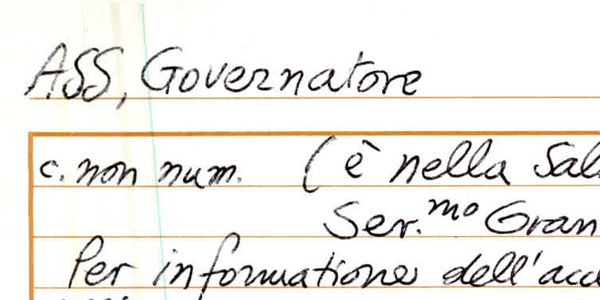 ASS, Governatore
c. non num. (è nella Sal
Ser.mo Gran
Per informatione dell'acc